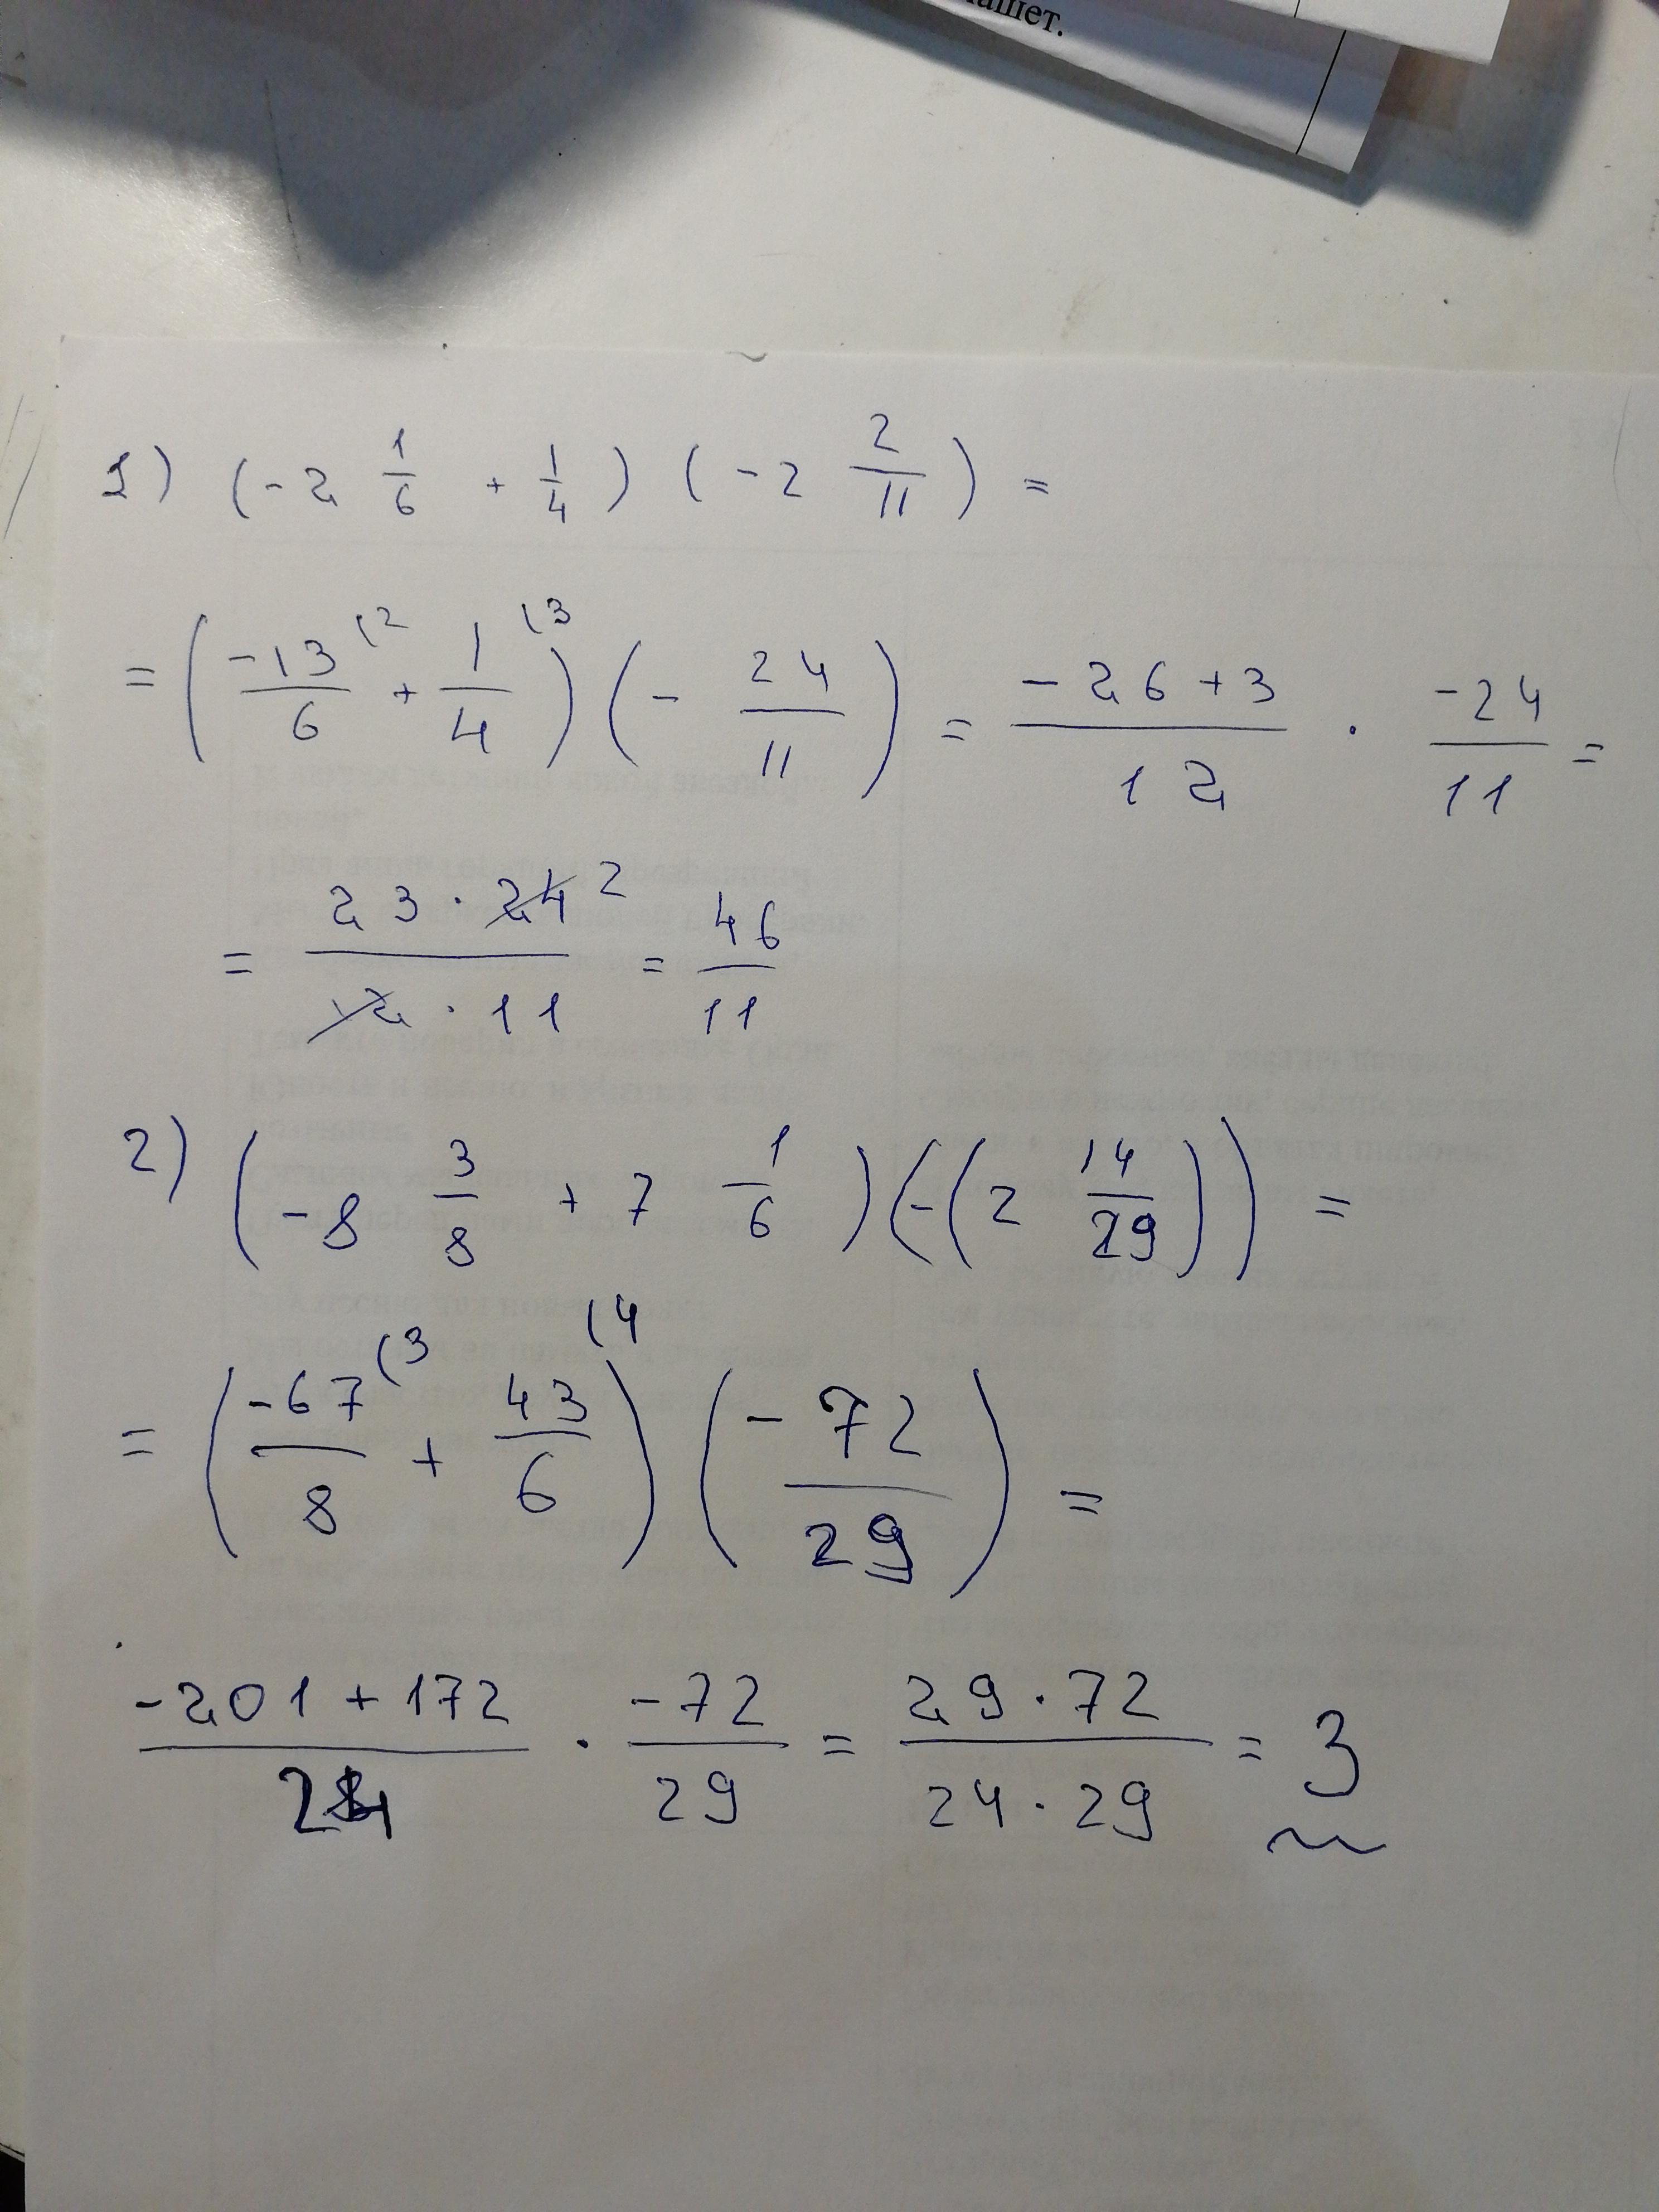 ашет.
1) (-2 1/6 + 1/4) (-2 2/11) =
= (-13/6 (2 + 1/4 (3) (- 24/11) = -26+3/12 · -24/11 =
= 23·24 2/12·11 = 46/11
2) (-8 3/8 + 7 1/6)(-(2 14/29)) =
= (-67/8 (3 + 43/6 (4) (-72/29) =
-201+172/24 · -72/29 = 29·72/24·29 = 3